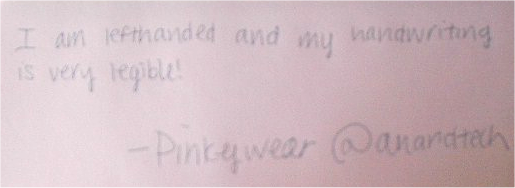 I am lefthanded and my handwriting
is very legible!
-Pinkywear @anandtech